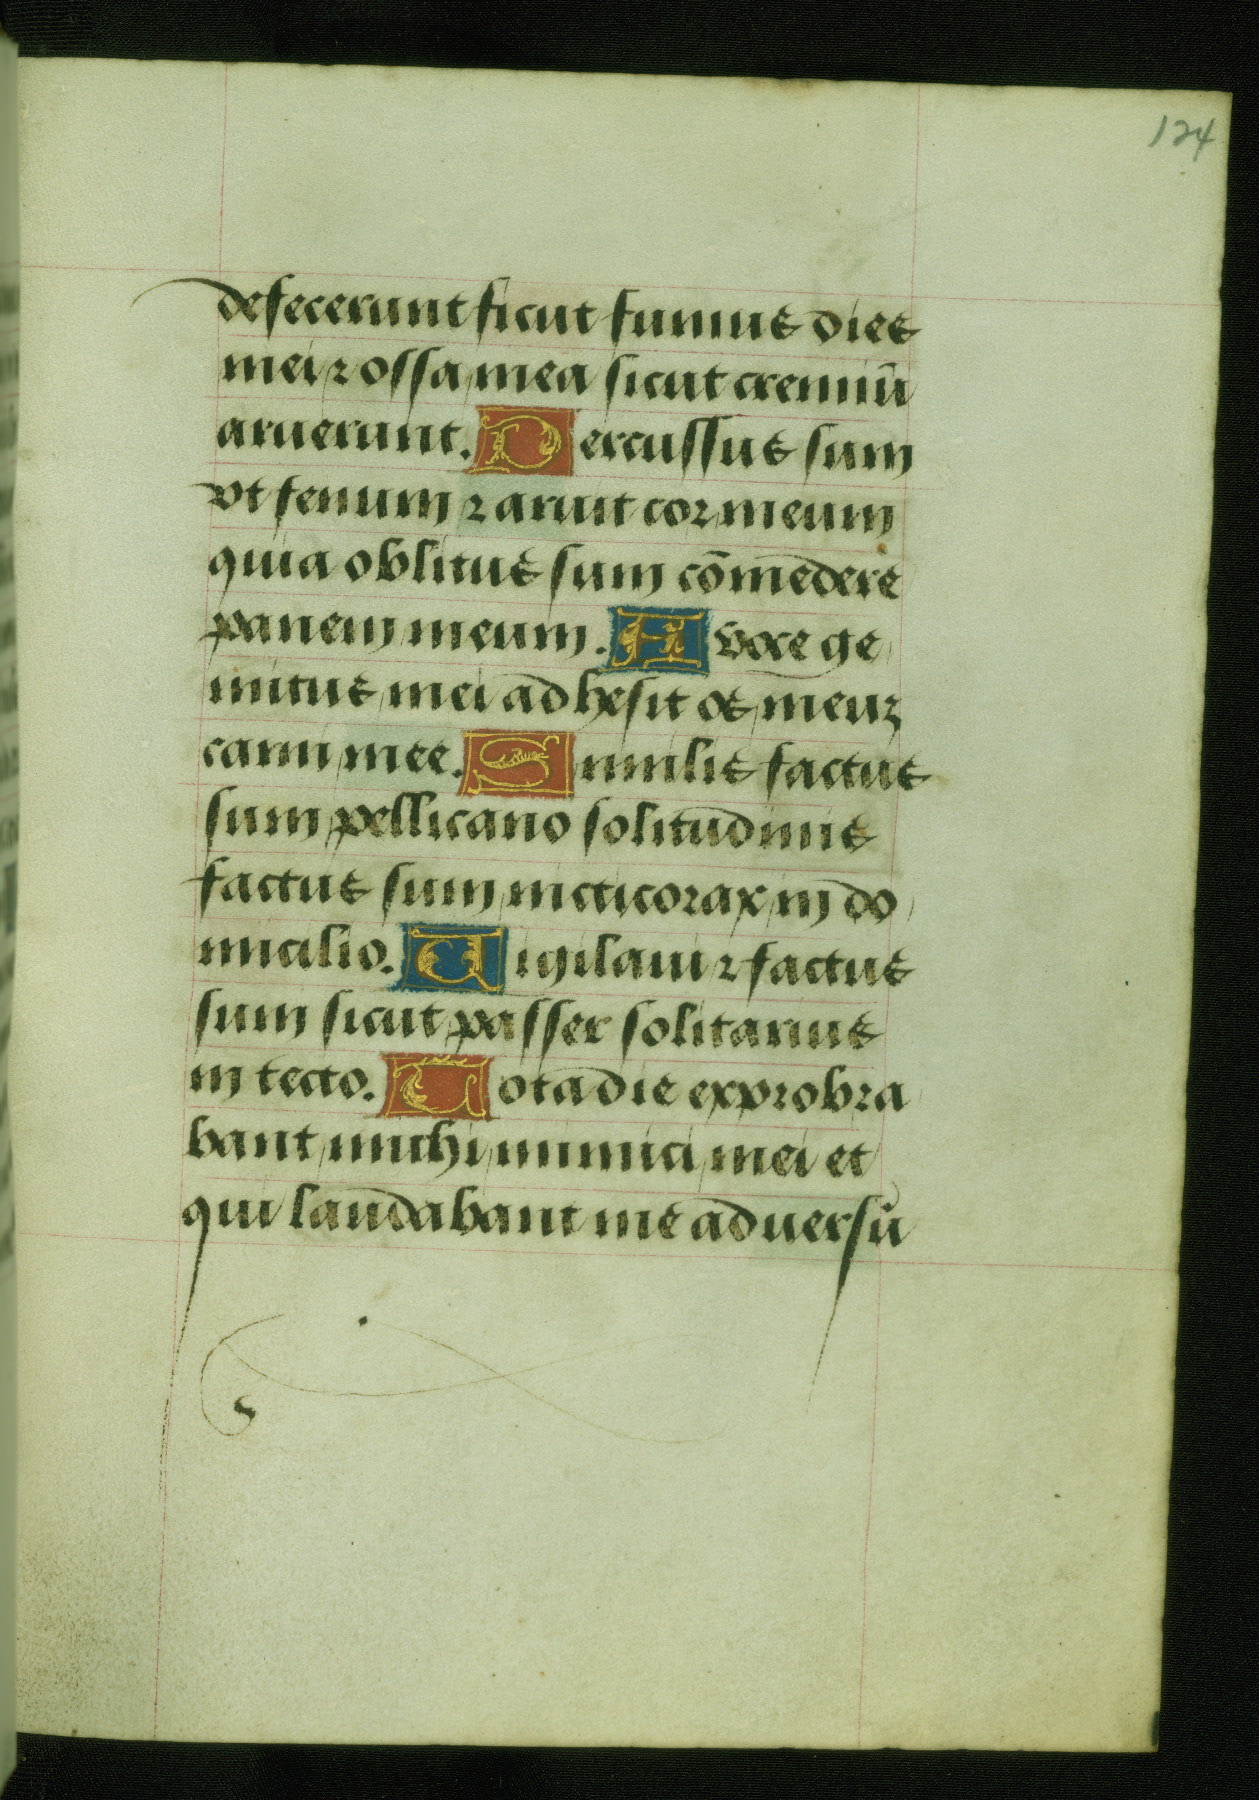 124
defecerunt sicut fumus dies
mei ⁊ ossa mea sicut cremiū
aruerunt. Percussus sum
vt fenum ⁊ aruit cor meum
quia oblitus sum cōmedere
panem meum. A voce ge
mitus mei adhesit os meum
carni mee. Similis factus
sum pellicano solitudinis
factus sum nicticorax in do
micilio. Uigilaui ⁊ factus
sum sicut passer solitarius
in tecto. Tota die exprobra
bant michi inimici mei et
qui laudabant me aduersū